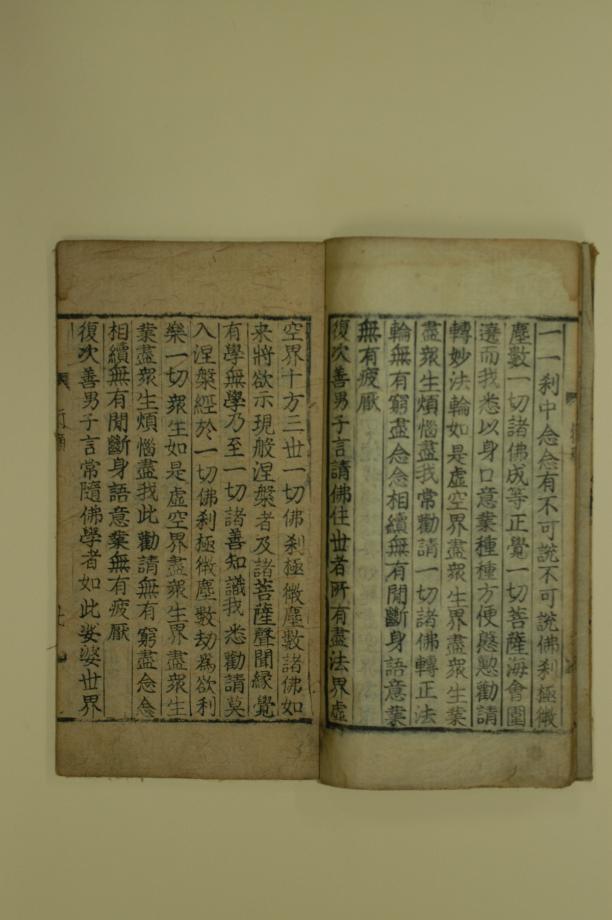 一一刹中念念有不可說不可說佛刹極微
塵數一切諸佛成等正覺一切菩薩海會圍
遶而我悉以身口意業種種方便慇懃勸請
轉妙法輪如是虛空界盡衆生界盡衆生業
盡衆生煩惱盡我常勸請一切諸佛轉正法
輪無有窮盡念念相續無有閒斷身語意業
無有疲厭
復次善男子言請佛住世者所有盡法界虛
空界十方三世一切佛刹極微塵數諸佛如
來將欲示現般涅槃者及諸菩薩聲聞緣覺
有學無學乃至一切諸善知識我悉勸請莫
入涅槃經於一切佛刹極微塵數劫爲欲利
樂一切衆生如是虛空界盡衆生界盡衆生
業盡衆生煩惱盡我此勸請無有窮盡念念
相續無有閒斷身語意業無有疲厭
復次善男子言常隨佛學者如此娑婆世界
行願